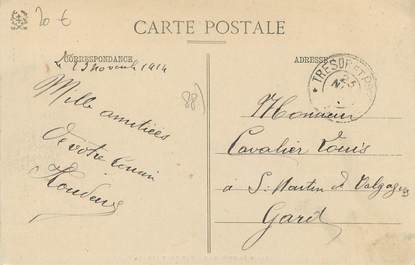 20 €
CARTE POSTALE
CORRESPONDANCE
ADRESSE
le 23 Novembre 1914
TRESOR ET P
25
(88)
Mille amitiées
de votre Cousin
Monsieur
Cavalier Louis
à St Martin de Valgagues
Gard